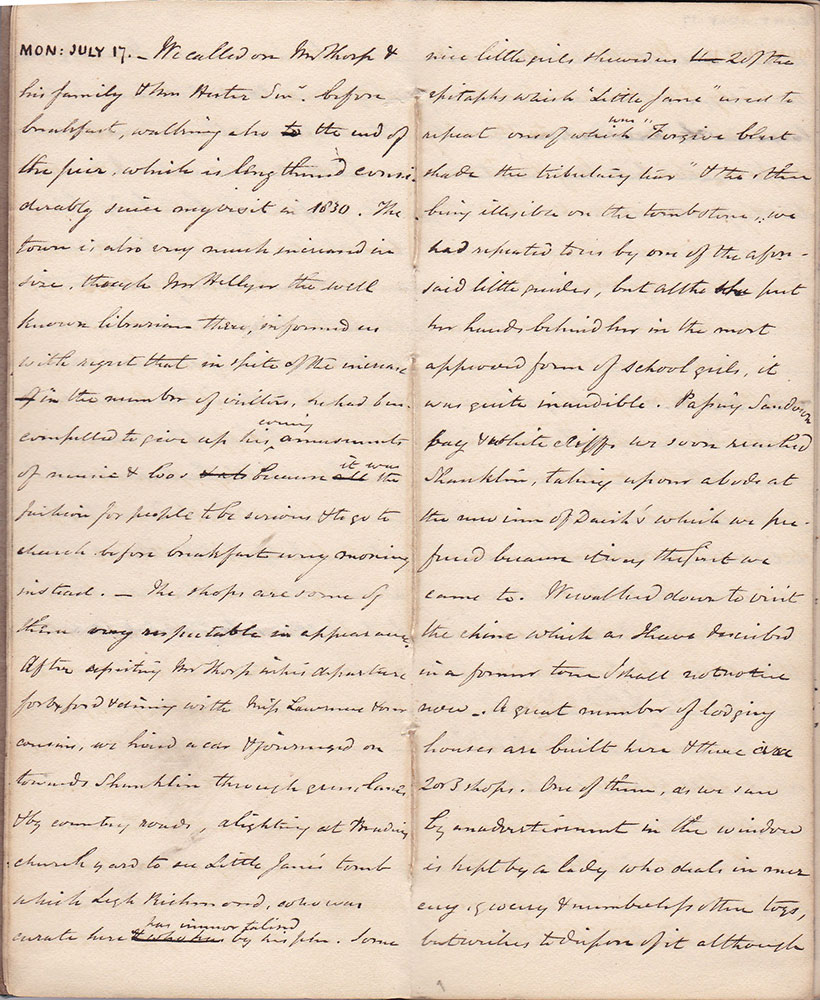 MON: JULY 17. – We called on Mr Thorp &
his family & Mrs Hester Senr. before
breakfast, walking also to the end of
the pier, which is lengthened consi-
derably since my visit in 1830. The
town is also very much increased in
size, though Mr Hellyer the well
known librarian there, informed us
with regret that in spite of the increase
of in the number of visitors, he had been
compelled to give up his evening amusements
of music & loo because it was the
fashion for people to be serious & to go to
church before breakfast every morning
instead. – The shops are some of
them very respectable in appearance.
After Mr Thorp in his departure
for Oxford & dining with Miss Lawrence & our
cousins, we hired a car & journeyed on
towards Shanklin through green lanes
& by country roads, alighting at Brading
church yard to see Little Jane's tomb
which Legh Richmond, who was
curate here & who has has immortalised by his pen. Some
nice little girls shewed us the 2 of the
epitaphs which "Little Jane" used to
repeat one of which was "Forgive blest
shade the tributary tear" & the other
being illegible on the tombstone, we
had repeated to us by one of the afore-
said little guides, but altho she put
her hands behind her in the most
approved form of school girls, it
was quite inaudible. Passing Sandown
bay & white cliffs we soon reached
Shanklin, taking up our abode at
the new inn of Daish's which we pre-
ferred because it was the first we
came to. We walked down to visit
the chine which as I have described
in a former tour I shall not notice
now. – A great number of lodging
houses are built here & there are
2 or 3 shops. One of them, as we saw
by an advertisement in the window
is kept by a lady who deals in mer
cery, grocery & numberless other togs,
but wishes to dispose of it although